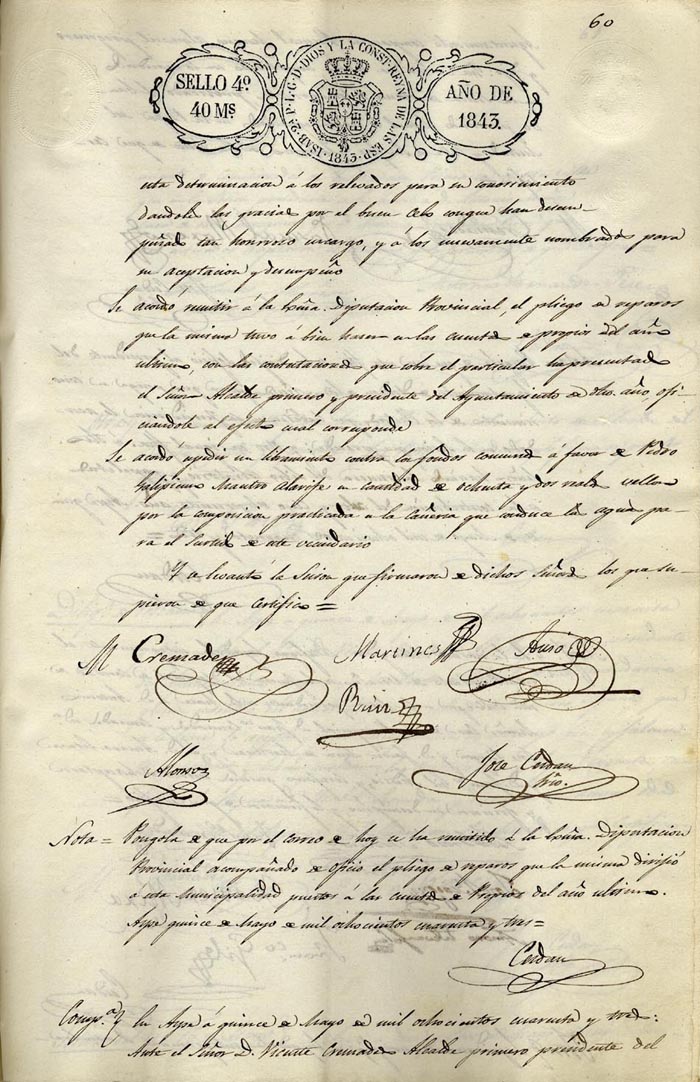 60
SELLO 4º
40 Ms
ISAB. 2ª P. L. G. D. DIOS Y LA CONST. REYNA DE LAS ESP. 1843.
AÑO DE
1843.
esta determinacion á los relevados para su conosimiento
dandole las gracias por el buen celo conque han desem-
peñado tan honroso encargo, y á los nuevamente nombrados para
su aceptacion y desempeño
Se acordó remitir á la Exma. Diputacion Provincial, el pliego de reparos
que la misma tuvo á bien hacer en las cuentas de propios del año
ultimo, con las contestaciones que sobre el particular ha presentado
el Señor Alcalde primero y presidente del Ayuntamiento de dho. año ofi-
ciandole al efecto cual corresponde
Se acordo espedir un libramiento contra los fondos comunes á favor de Pedro
Galipienso Maestro alarife en cantidad de ochenta y dos reales vellon
por la composicion practicada en la cañeria que conduce las aguas pa-
ra el surtido de este vecindario
Y se levantó la Sesion que firmaron de dichos Señores los que su-
pieron de que certifico =
M Cremades
Martinez
Ausó
Ruiz
Alonso
Jose Cerdan
Srio.
Nota = Pongola de que por el correo de hoy se ha remitido á la Exma. Diputacion
Provincial acompañado de oficio el pliego de reparos que la misma dirigió
a esta Municipalidad puestos á las cuentas de Propios del año ultimo.
Aspe quince de Mayo de mil ochocientos cuarenta y tres =
Cerdan
En Aspe á quince de Mayo de mil ochocientos cuarenta y tres:
Ante el Señor D. Vicente Cremades Alcalde primero presidente del